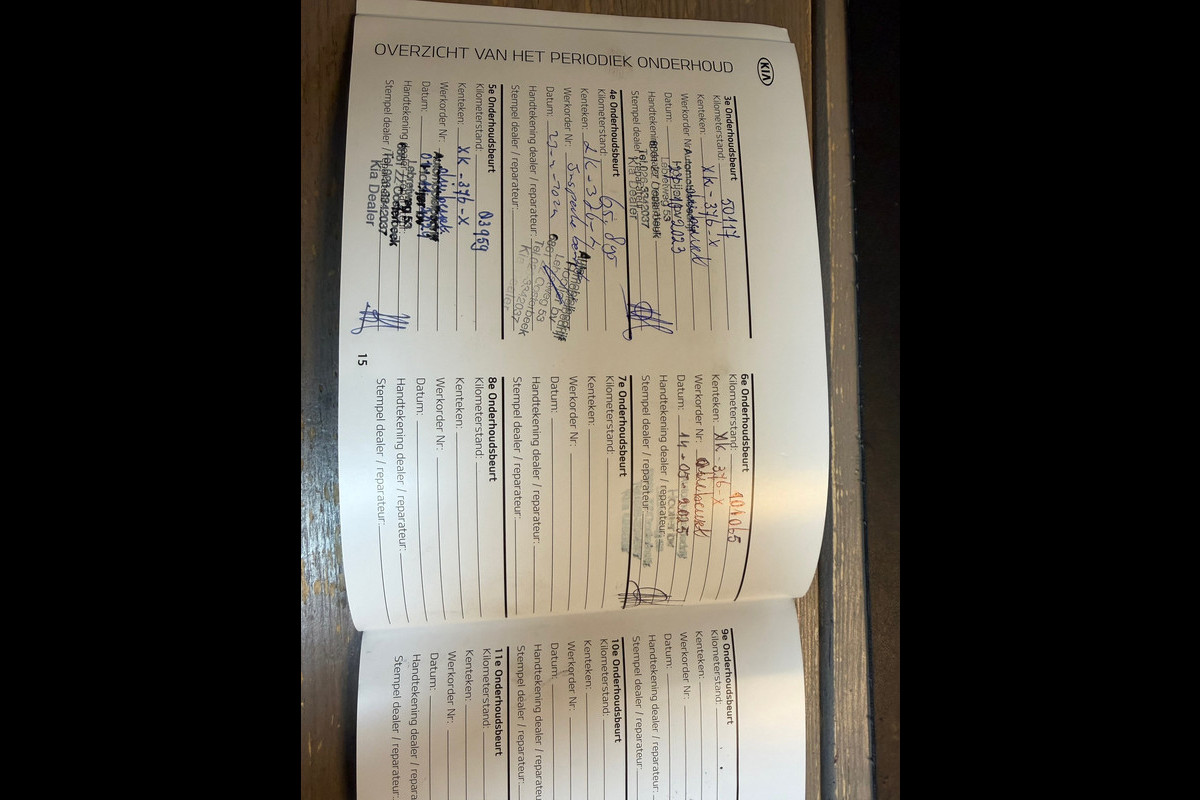 OVERZICHT VAN HET PERIODIEK ONDERHOUD
KIA
3e Onderhoudsbeurt
Kilometerstand: 50117
Kenteken: XK-376-X
Werkorder Nr:
Datum: 2023
Handtekening dealer / reparateur:
Stempel dealer / reparateur:
Lebretweg 53
Kia Dealer
4e Onderhoudsbeurt
Kilometerstand: 65.895
Kenteken:
Werkorder Nr:
Datum:
Handtekening dealer / reparateur:
Stempel dealer / reparateur:
5e Onderhoudsbeurt
Kilometerstand: 83959
Kenteken: XK-376-X
Werkorder Nr:
Datum:
Handtekening dealer
Stempel dealer /
Lebretweg 53
Kia Dealer
6e Onderhoudsbeurt
Kilometerstand: 101065
Kenteken: XK-376-X
Werkorder Nr:
Datum: 14-05-2025
Handtekening dealer / reparateur:
Stempel dealer / reparateur:
7e Onderhoudsbeurt
Kilometerstand:
Kenteken:
Werkorder Nr:
Datum:
Handtekening dealer / reparateur:
Stempel dealer / reparateur:
8e Onderhoudsbeurt
Kilometerstand:
Kenteken:
Werkorder Nr:
Datum:
Handtekening dealer / reparateur:
Stempel dealer / reparateur:
15
9e Onderhoudsbeurt
Kilometerstand:
Kenteken:
Werkorder Nr:
Datum:
Handtekening dealer / reparateur:
Stempel dealer / reparateur:
10e Onderhoudsbeurt
Kilometerstand:
Kenteken:
Werkorder Nr:
Datum:
Handtekening dealer / reparateu
Stempel dealer / reparateur:
11e Onderhoudsbeurt
Kilometerstand:
Kenteken:
Werkorder Nr:
Datum:
Handtekening dealer / repara
Stempel dealer / reparateur: